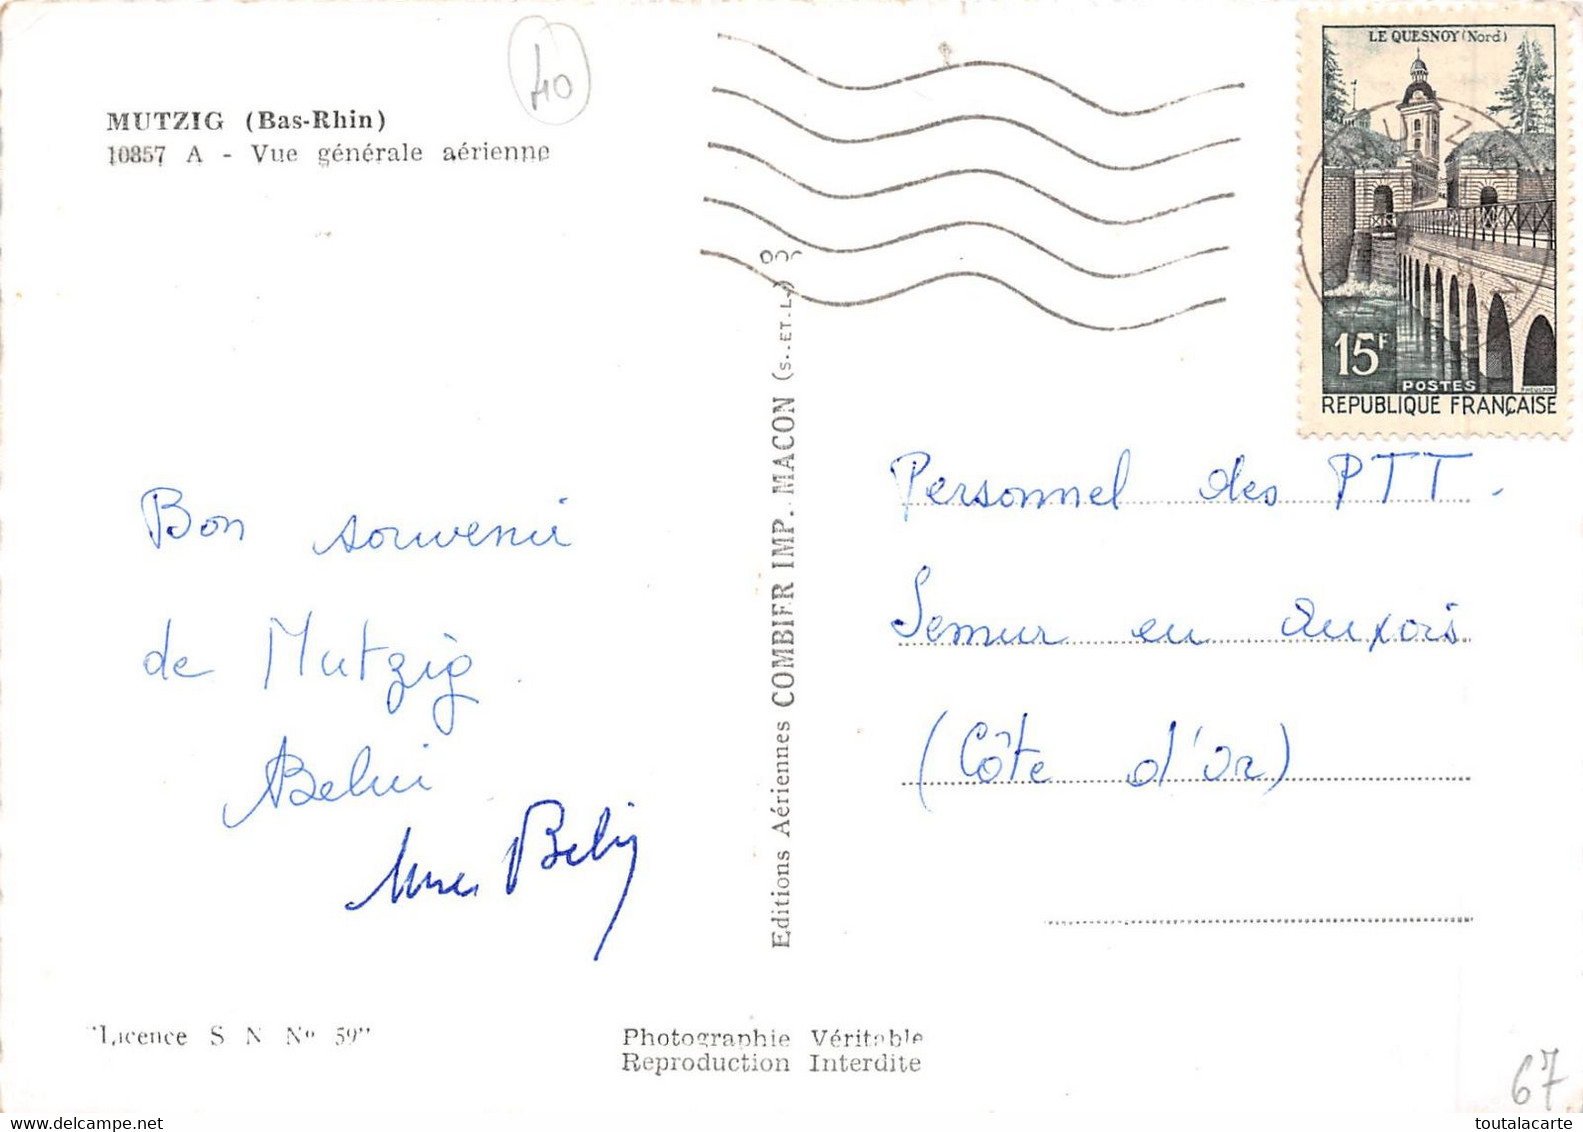 40
MUTZIG (Bas-Rhin)
10857 A - Vue générale aérienne
LE QUESNOY (Nord)
15F
POSTES
REPUBLIQUE FRANÇAISE
Bon souvenir
de Mutzig
Personnel des PTT -
Semur en Auxois
(Côte d'Or)
Editions Aériennes COMBIER IMP. MACON (S.-ET-L.)
"Licence S N No 59"
Photographie Véritable
Reproduction Interdite
67
toutalacarte